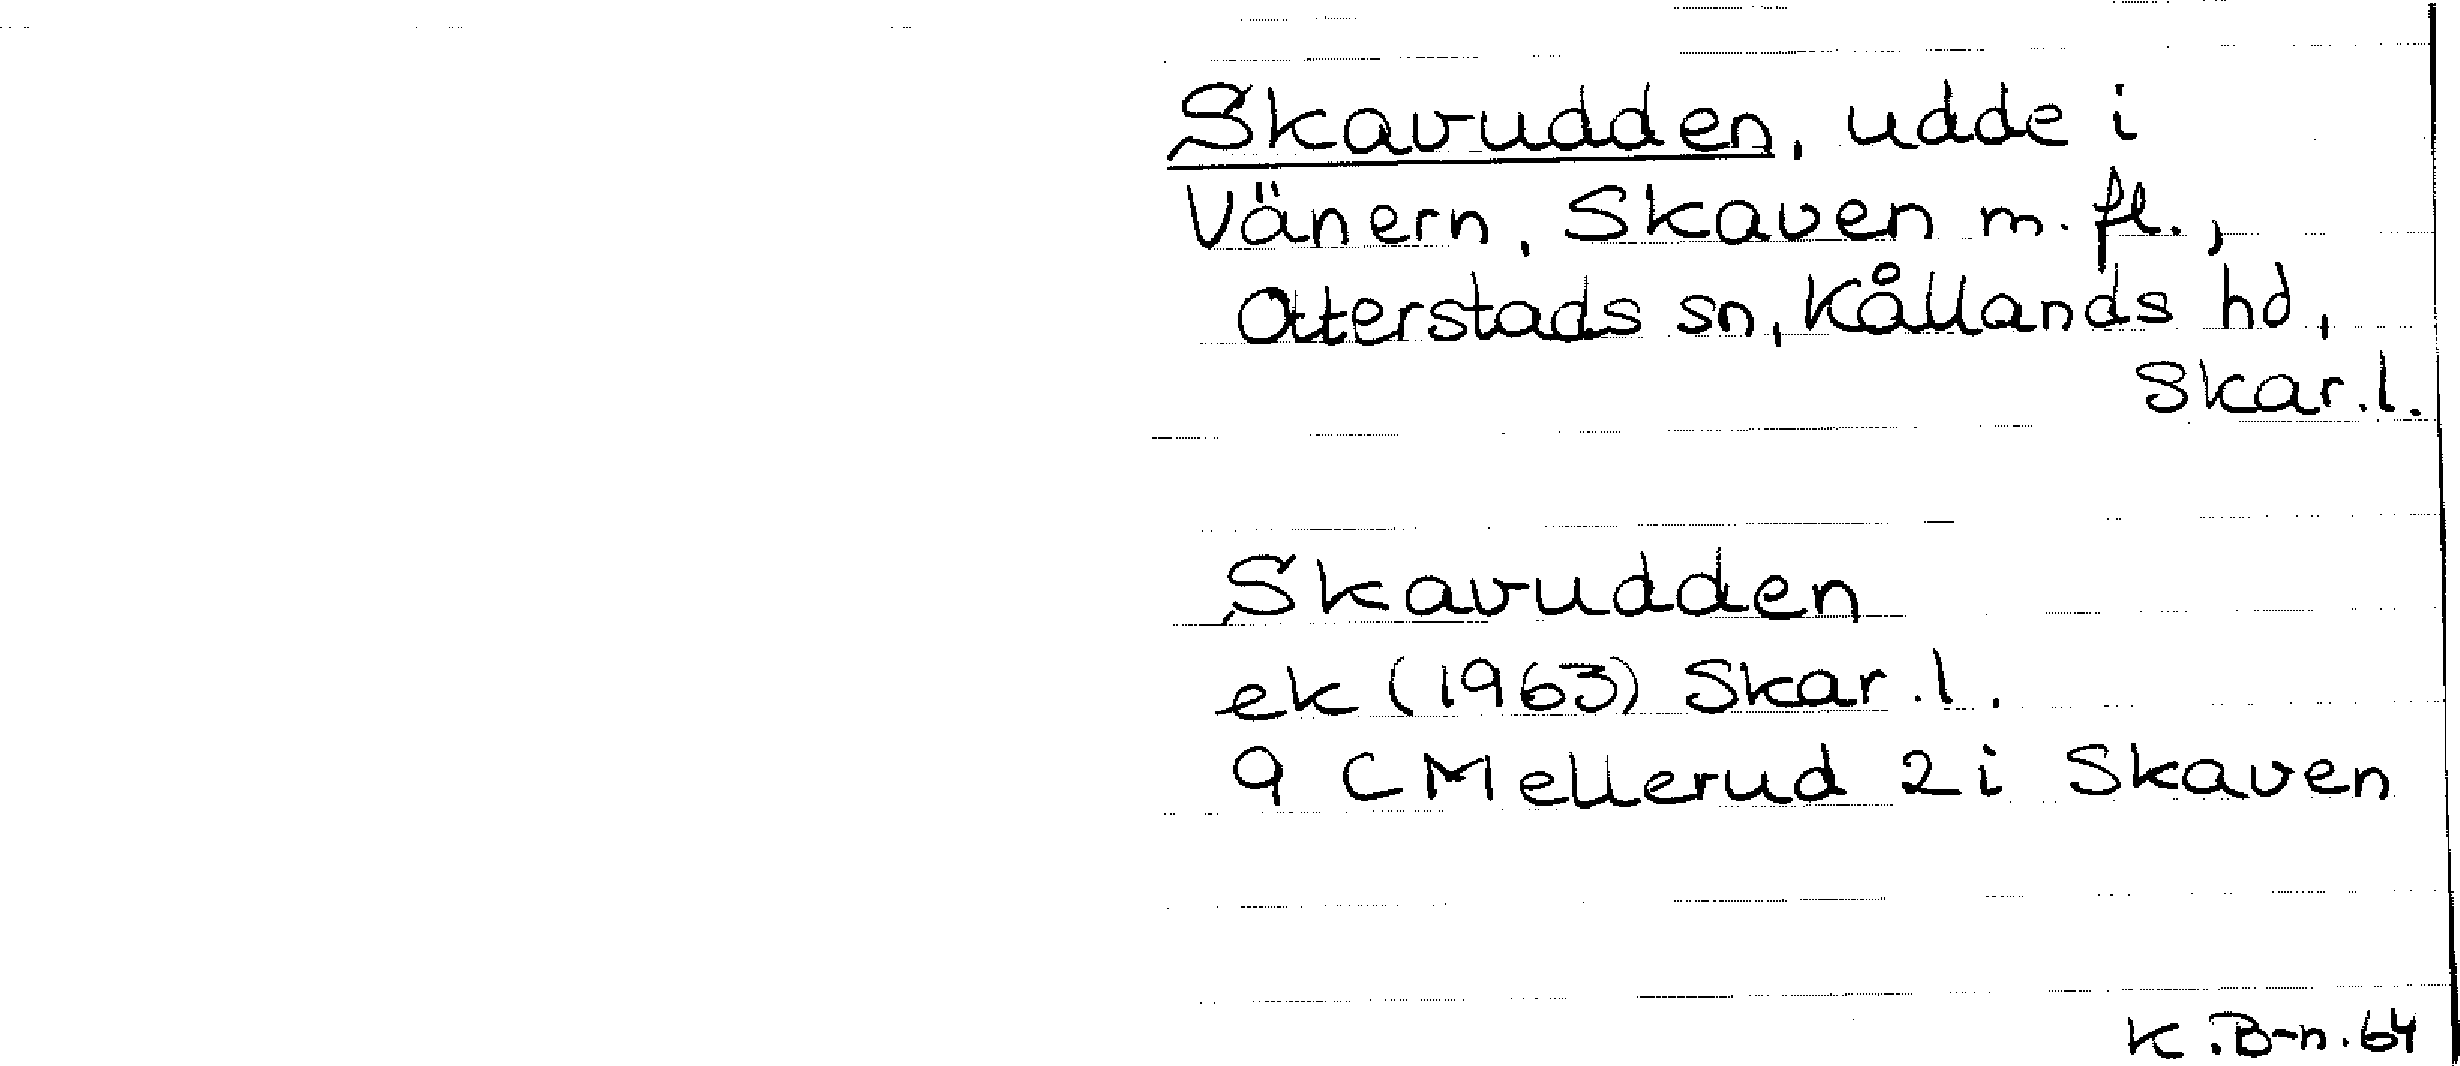 Skavudden, udde i
Vänern, Skaven m. fl.,
Otterstads sn, Kållands hd,
Skar. l.
Skavudden
ek (1963) Skar. l.
9 C Mellerud 2 i Skaven
K. B-n. 64